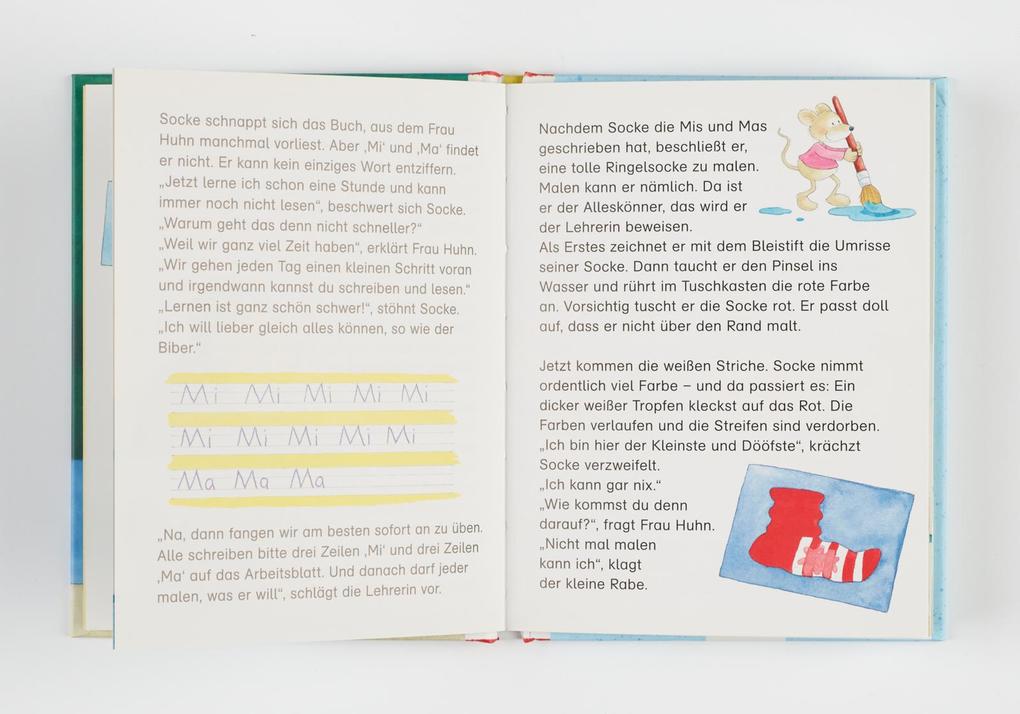 Socke schnappt sich das Buch, aus dem Frau
Huhn manchmal vorliest. Aber ‚Mi‘ und ‚Ma‘ findet
er nicht. Er kann kein einziges Wort entziffern.
„Jetzt lerne ich schon eine Stunde und kann
immer noch nicht lesen“, beschwert sich Socke.
„Warum geht das denn nicht schneller?“
„Weil wir ganz viel Zeit haben“, erklärt Frau Huhn.
„Wir gehen jeden Tag einen kleinen Schritt voran
und irgendwann kannst du schreiben und lesen.“
„Lernen ist ganz schön schwer!“, stöhnt Socke.
„Ich will lieber gleich alles können, so wie der
Biber.“
Mi Mi Mi Mi Mi
Mi Mi Mi Mi Mi
Ma Ma Ma
„Na, dann fangen wir am besten sofort an zu üben.
Alle schreiben bitte drei Zeilen ‚Mi‘ und drei Zeilen
‚Ma‘ auf das Arbeitsblatt. Und danach darf jeder
malen, was er will“, schlägt die Lehrerin vor.
Nachdem Socke die Mis und Mas
geschrieben hat, beschließt er,
eine tolle Ringelsocke zu malen.
Malen kann er nämlich. Da ist
er der Alleskönner, das wird er
der Lehrerin beweisen.
Als Erstes zeichnet er mit dem Bleistift die Umrisse
seiner Socke. Dann taucht er den Pinsel ins
Wasser und rührt im Tuschkasten die rote Farbe
an. Vorsichtig tuscht er die Socke rot. Er passt doll
auf, dass er nicht über den Rand malt.
Jetzt kommen die weißen Striche. Socke nimmt
ordentlich viel Farbe – und da passiert es: Ein
dicker weißer Tropfen kleckst auf das Rot. Die
Farben verlaufen und die Streifen sind verdorben.
„Ich bin hier der Kleinste und Dööfste“, krächzt
Socke verzweifelt.
„Ich kann gar nix.“
„Wie kommst du denn
darauf?“, fragt Frau Huhn.
„Nicht mal malen
kann ich“, klagt
der kleine Rabe.